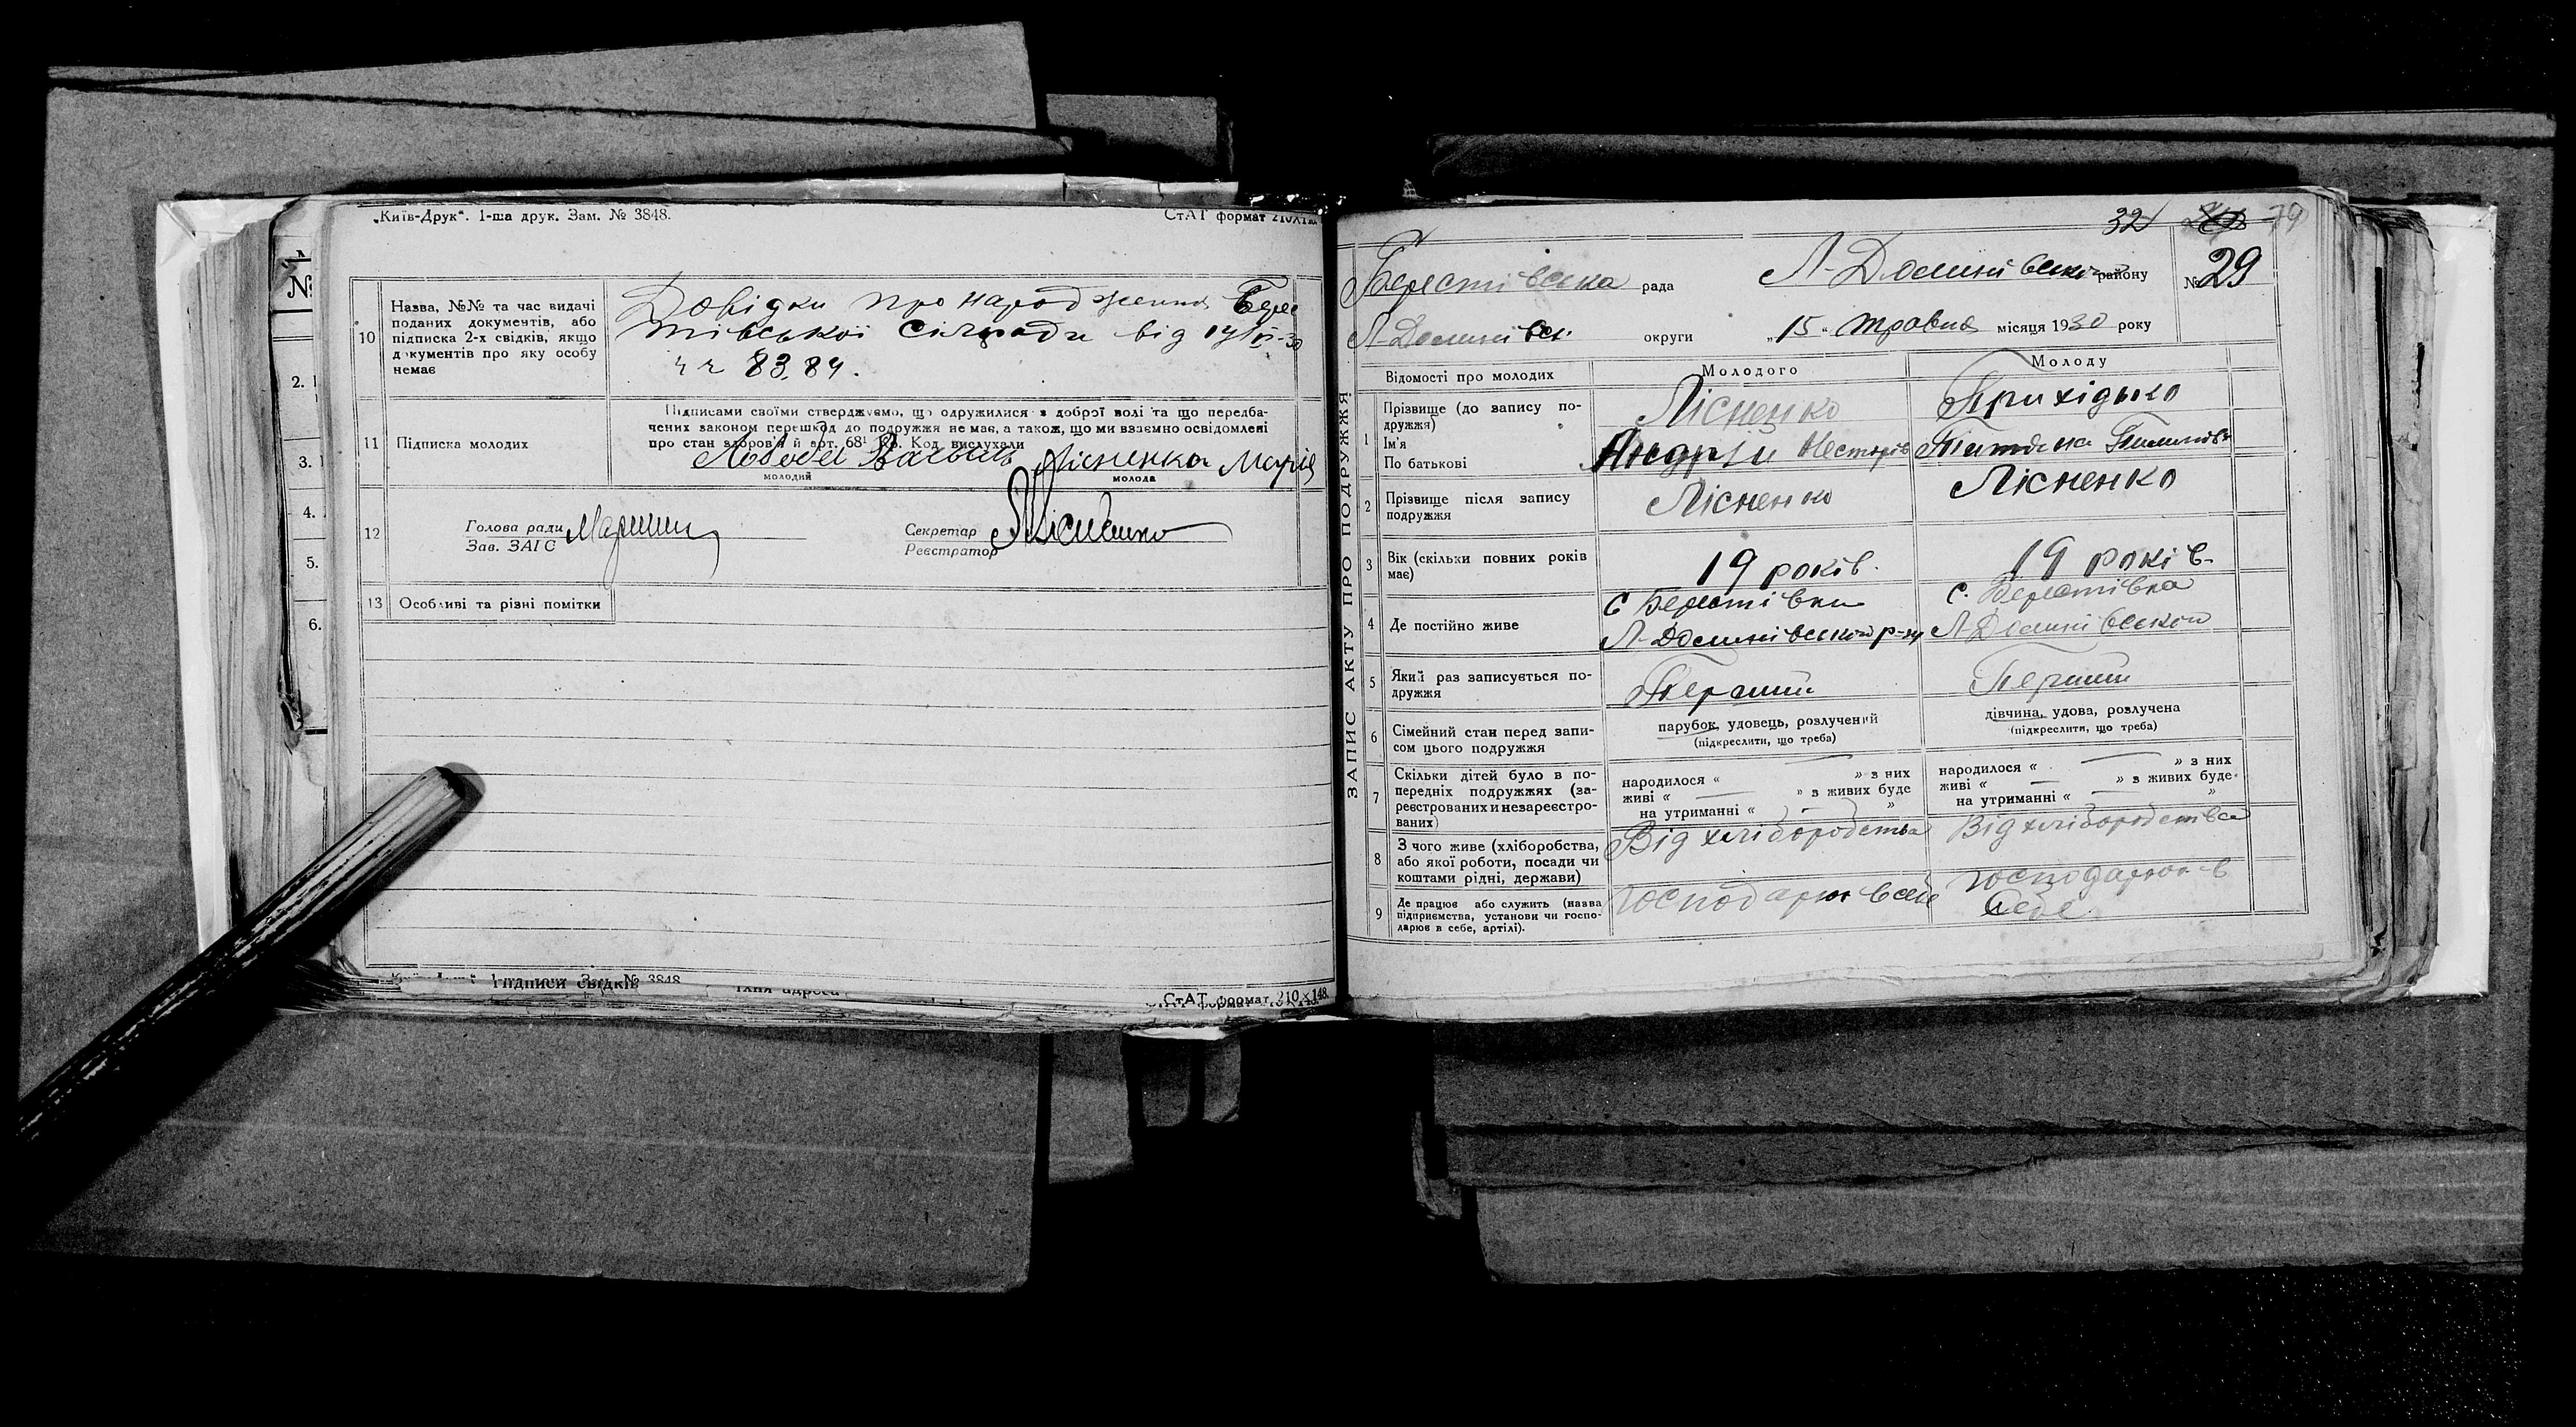 „Київ-Друк“. 1-ша друк. Зам. № 3848.
СтАТ формат 210х148
№
2.
3.
4.
5.
6.
10
Назва, №№ та час видачі
поданих документів, або
підписка 2-х свідків, якщо
документів про яку особу
немає
Довідки про народження Берес
тівської сілради від
83, 84.
11 Підписка молодих
Підписами своїми стверджуємо, що одружилися з доброї волі та що передба-
чених законом перешкод до подружжя немає, а також, що ми взаємно освідомлені
про стан здоров'я й арт. 68¹ Кр. Код. вислухали
Лісненка Марія
молодий
молода
12
Голова ради
Зав. ЗАГС
Секретар
Реєстратор
Лісненко
13 Особливі та різні помітки
Підписи свідків
їхня адреса
СтАТ формат 210×148.
32 79
Берестівська рада
Л-Долинівського району
№ 29
Л-Долинівськ округи
„15“ травня місяця 1930 року
ЗАПИС АКТУ ПРО ПОДРУЖЖЯ
Відомості про молодих
Молодого
Молоду
1
Прізвище (до запису по-
дружжя)
Ім'я
По батькові
Лісненко
Андрій Несторів
Приходько
Татяна
2
Прізвище після запису
подружжя
Лісненко
Лісненко
3
Вік (скільки повних років
має)
19 років.
19 років
4 Де постійно живе
С Берестівки
Л-Долинівського р-ну
с. Берестівка
Л-Долинівского
5
Який раз записується по-
дружжя
Перший
Перший
6
Сімейний стан перед запи-
сом цього подружжя
парубок, удовець, розлучений
(підкреслити, що треба)
дівчина, удова, розлучена
(підкреслити, що треба)
7
Скільки дітей було в по-
передніх подружжях (за-
реєстрованих и незареєстро-
ваних)
народилося « — » з них
живі « — » з живих буде
на утриманні « — »
народилося « — » з них
живі « — » з живих буде
на утриманні « — »
8
З чого живе (хліборобства,
або якої роботи, посади чи
коштами рідні, держави)
Від хліборобства
Від хліборобства
9
Де працює або служить (назва
підприємства, установи чи госпо-
дарює в себе, артілі).
Господарює в себе
Господарює в
себе.